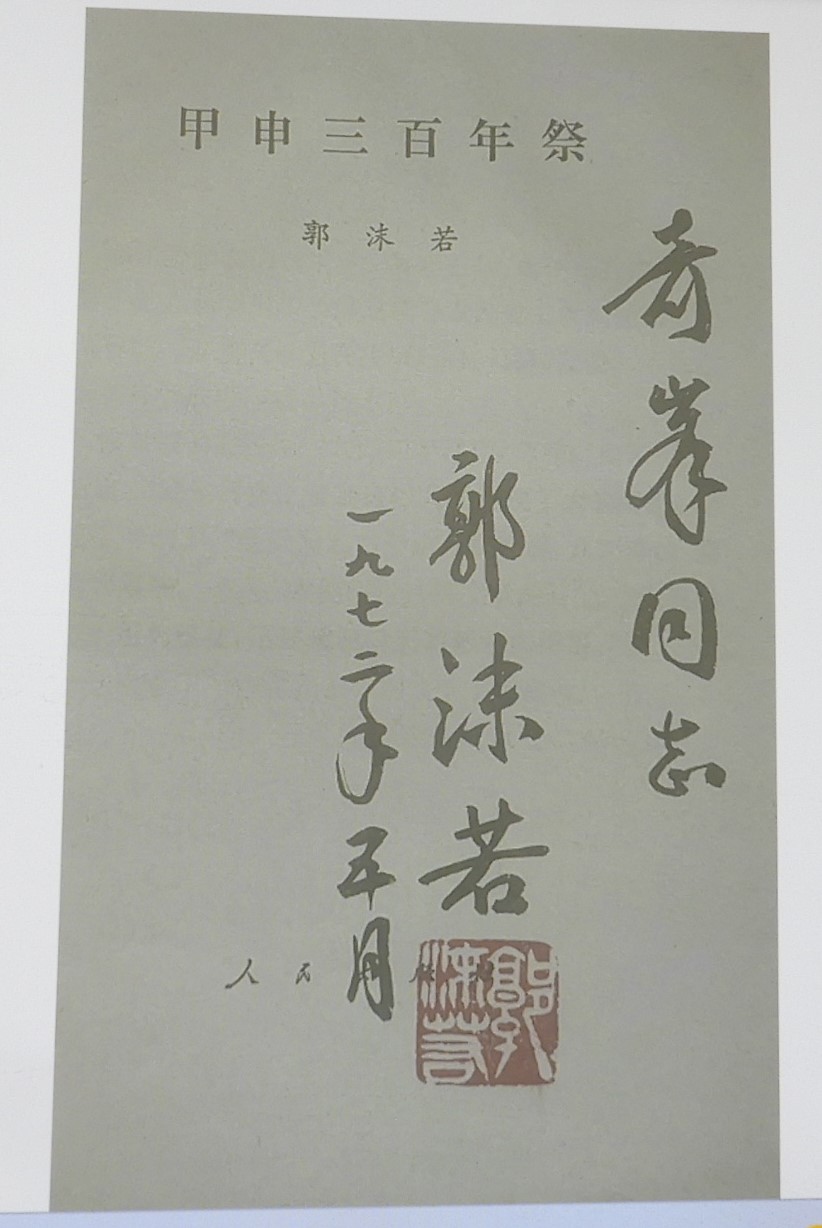 甲申三百年祭
郭沫若
奇峯同志
郭沫若
一九七二年五月
人民
郭沫若